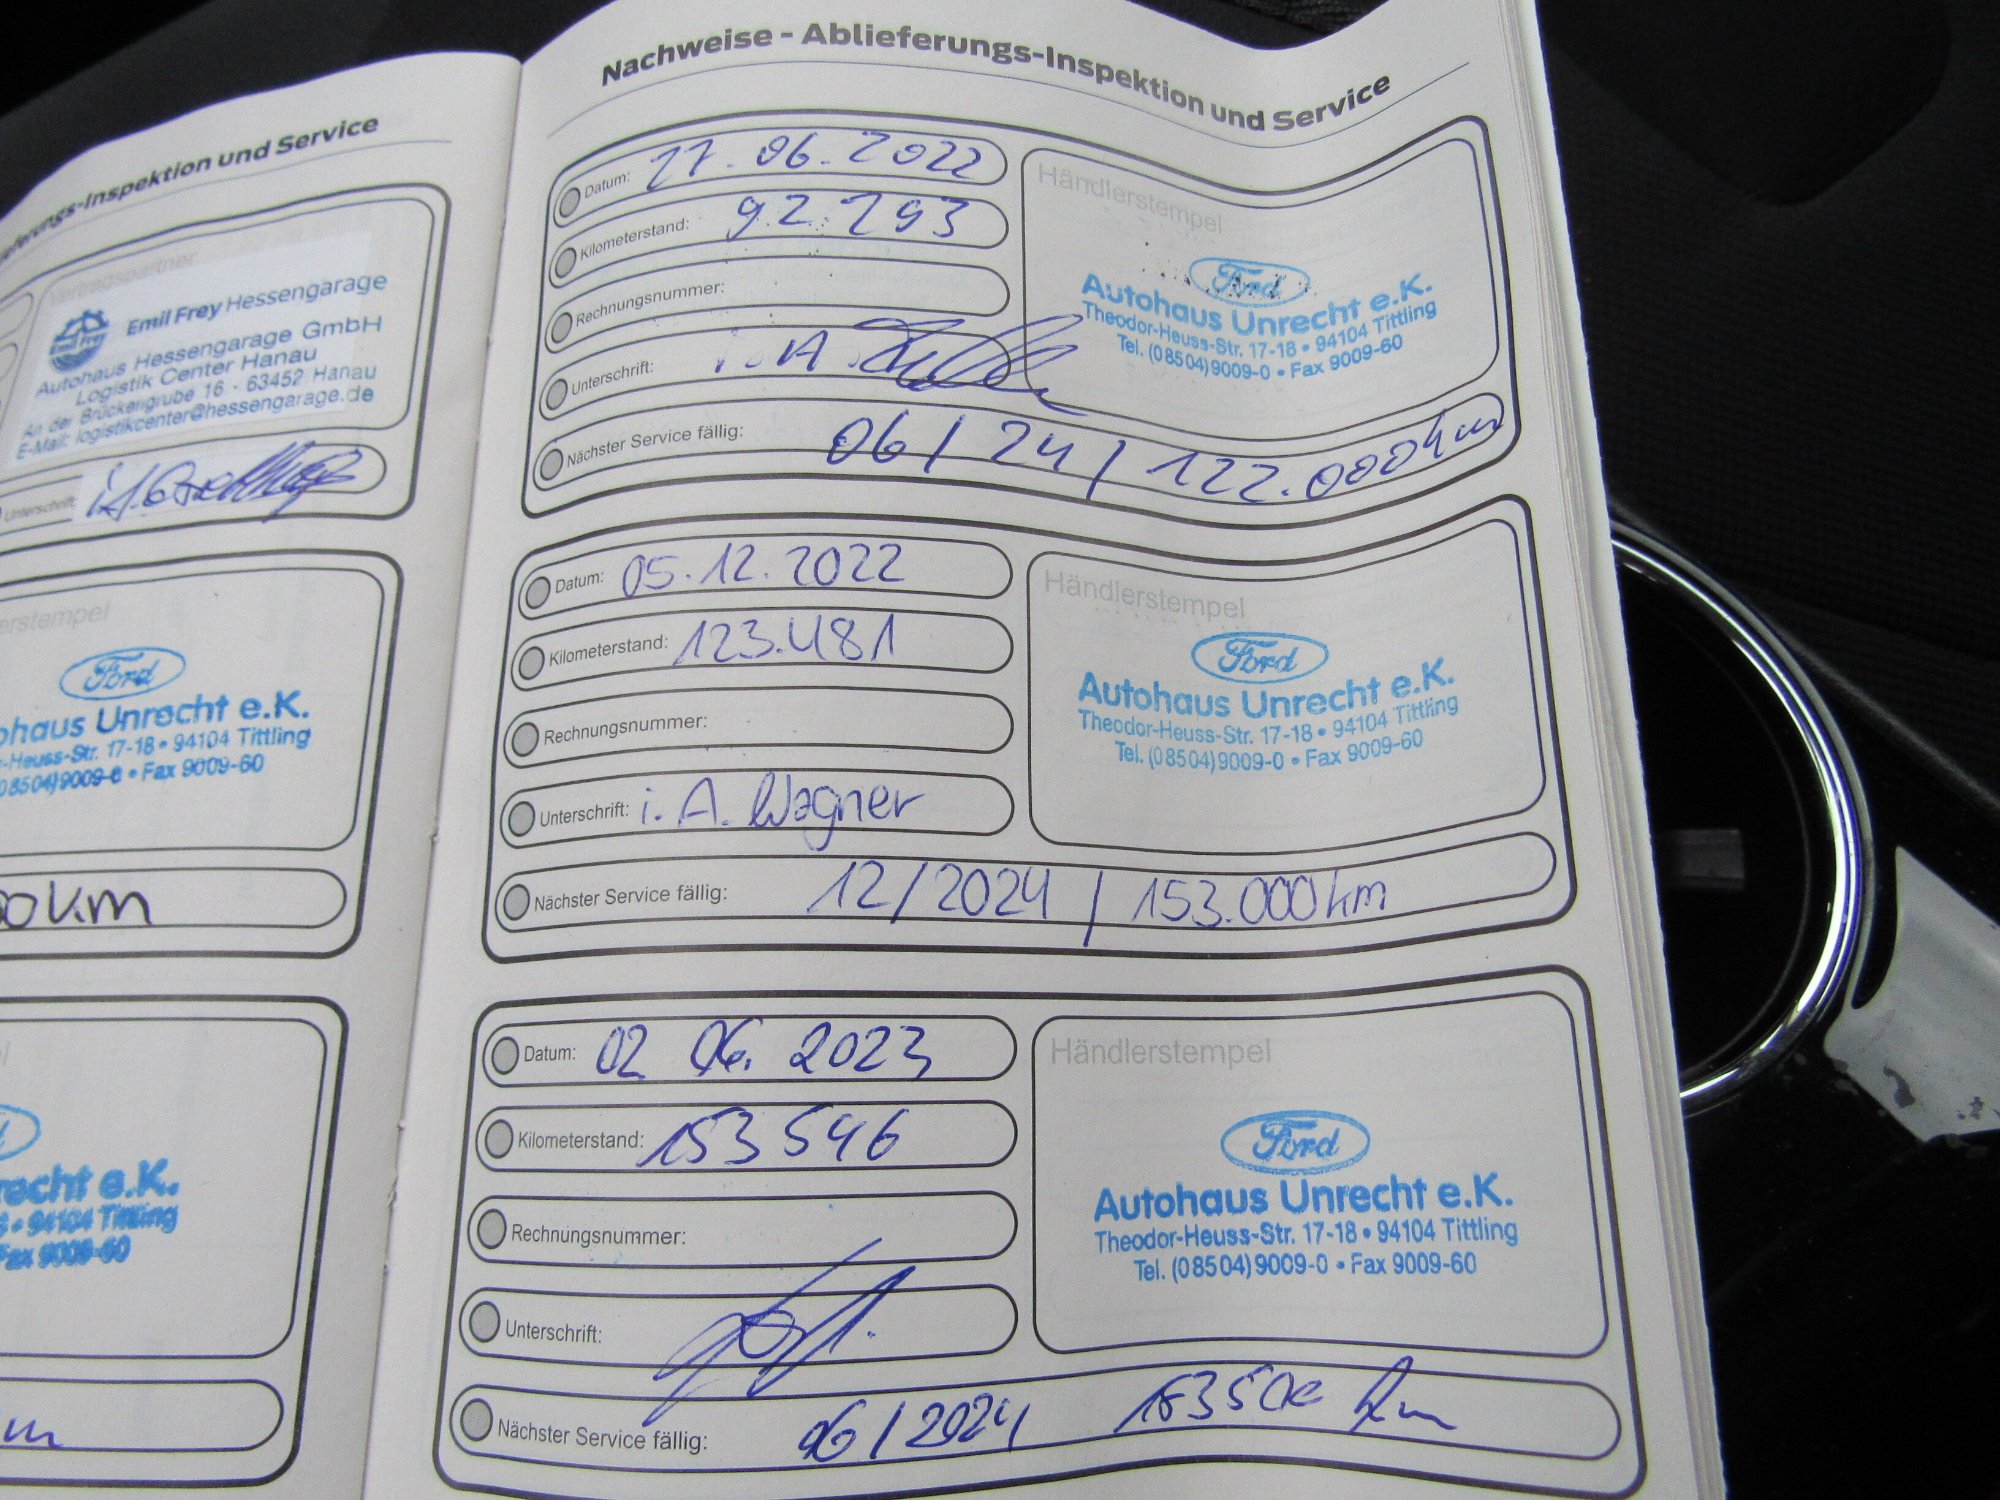 Inspektion und Service
Vertragspartner
Emil Frey
Emil Frey Hessengarage
Autohaus Hessengarage GmbH
Logistik Center Hanau
An der Brückengrube 16 - 63452 Hanau
E-Mail: logistikcenter@hessengarage.de
Unterschrift
Ford
Unrecht e.K.
17-18 • 94104 Tittling
• Fax 9009-60
km
e.K.
• 94104 Tittling
Fax 9009-60
Nachweise - Ablieferungs-Inspektion und Service
Datum: 06.2022
Kilometerstand: 92.293
Rechnungsnummer:
Unterschrift: i.A.
Nächster Service fällig: 06/24/122.000km
Händlerstempel
Ford
Autohaus Unrecht e.K.
Theodor-Heuss-Str. 17-18 • 94104 Tittling
Tel. (08504) 9009-0 • Fax 9009-60
Datum: 05.12.2022
Kilometerstand: 123.481
Rechnungsnummer:
Unterschrift: i. A. Wagner
Nächster Service fällig: 12/2024 / 153.000km
Händlerstempel
Ford
Autohaus Unrecht e.K.
Theodor-Heuss-Str. 17-18 • 94104 Tittling
Tel. (08504) 9009-0 • Fax 9009-60
Datum: 02 06. 2023
Kilometerstand: 153546
Rechnungsnummer:
Unterschrift:
Nächster Service fällig: 06/2024 183500 km
Händlerstempel
Ford
Autohaus Unrecht e.K.
Theodor-Heuss-Str. 17-18 • 94104 Tittling
Tel. (08504) 9009-0 • Fax 9009-60